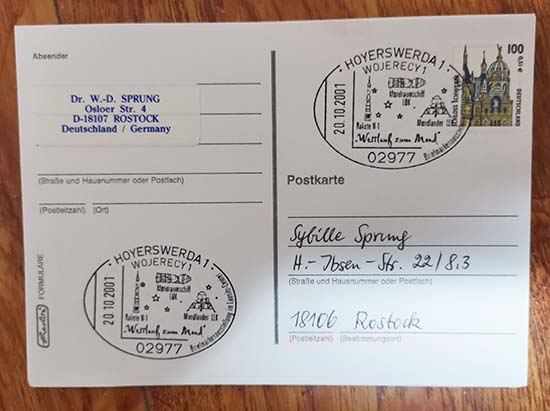 Absender
Dr. W.-D. SPRUNG
Osloer Str. 4
D-18107 ROSTOCK
Deutschland / Germany
(Straße und Hausnummer oder Postfach)
(Postleitzahl) (Ort)
FORMULARE
HOYERSWERDA 1
WOJERECY 1
20.10.2001
Mondraumschiff
LOK
Rakete N-1
Mondlander LEK
"Wettlauf zum Mond"
02977
HOYERSWERDA 1
WOJERECY 1
20.10.2001
Mondraumschiff
LOK
Rakete N-1
Mondlander LEK
"Wettlauf zum Mond"
02977
100
0,51 €
DEUTSCHLAND
Schloss Schwerin
Postkarte
Sybille Sprung
H.-Ibsen-Str. 22/8,3
(Straße und Hausnummer oder Postfach)
18106 Rostock
(Postleitzahl) (Bestimmungsort)